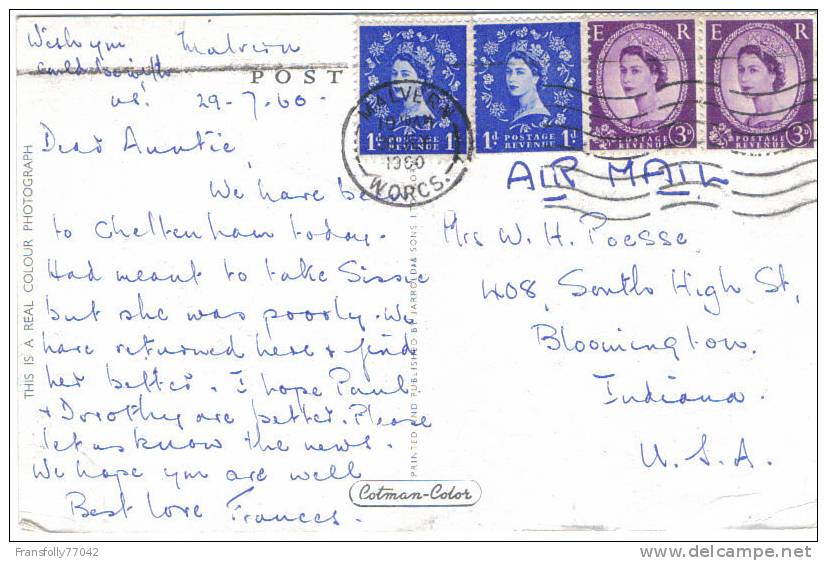 Wish you Malvern
could be with
us. 29-7-60.
Dear Auntie,
We have been
to Cheltenham today.
Had meant to take Sissie
but she was poorly. We
have returned here + find
her better. I hope Paul
+ Dorothy are better. Please
let us know the news.
We hope you are well
Best love Frances.
POST
THIS IS A REAL COLOUR PHOTOGRAPH
PRINTED AND PUBLISHED BY JARROLD & SONS
Cotman-Color
1d POSTAGE REVENUE 1d
1d POSTAGE REVENUE 1d
E R
POSTAGE REVENUE 3D
E R
POSTAGE REVENUE 3D
MALVERN
1960
WORCS.
AIR MAIL
Mrs W. H. Poesse
408, South High St,
Bloomington.
Indiana.
U.S.A.
Fransfolly77042
delcampe.net